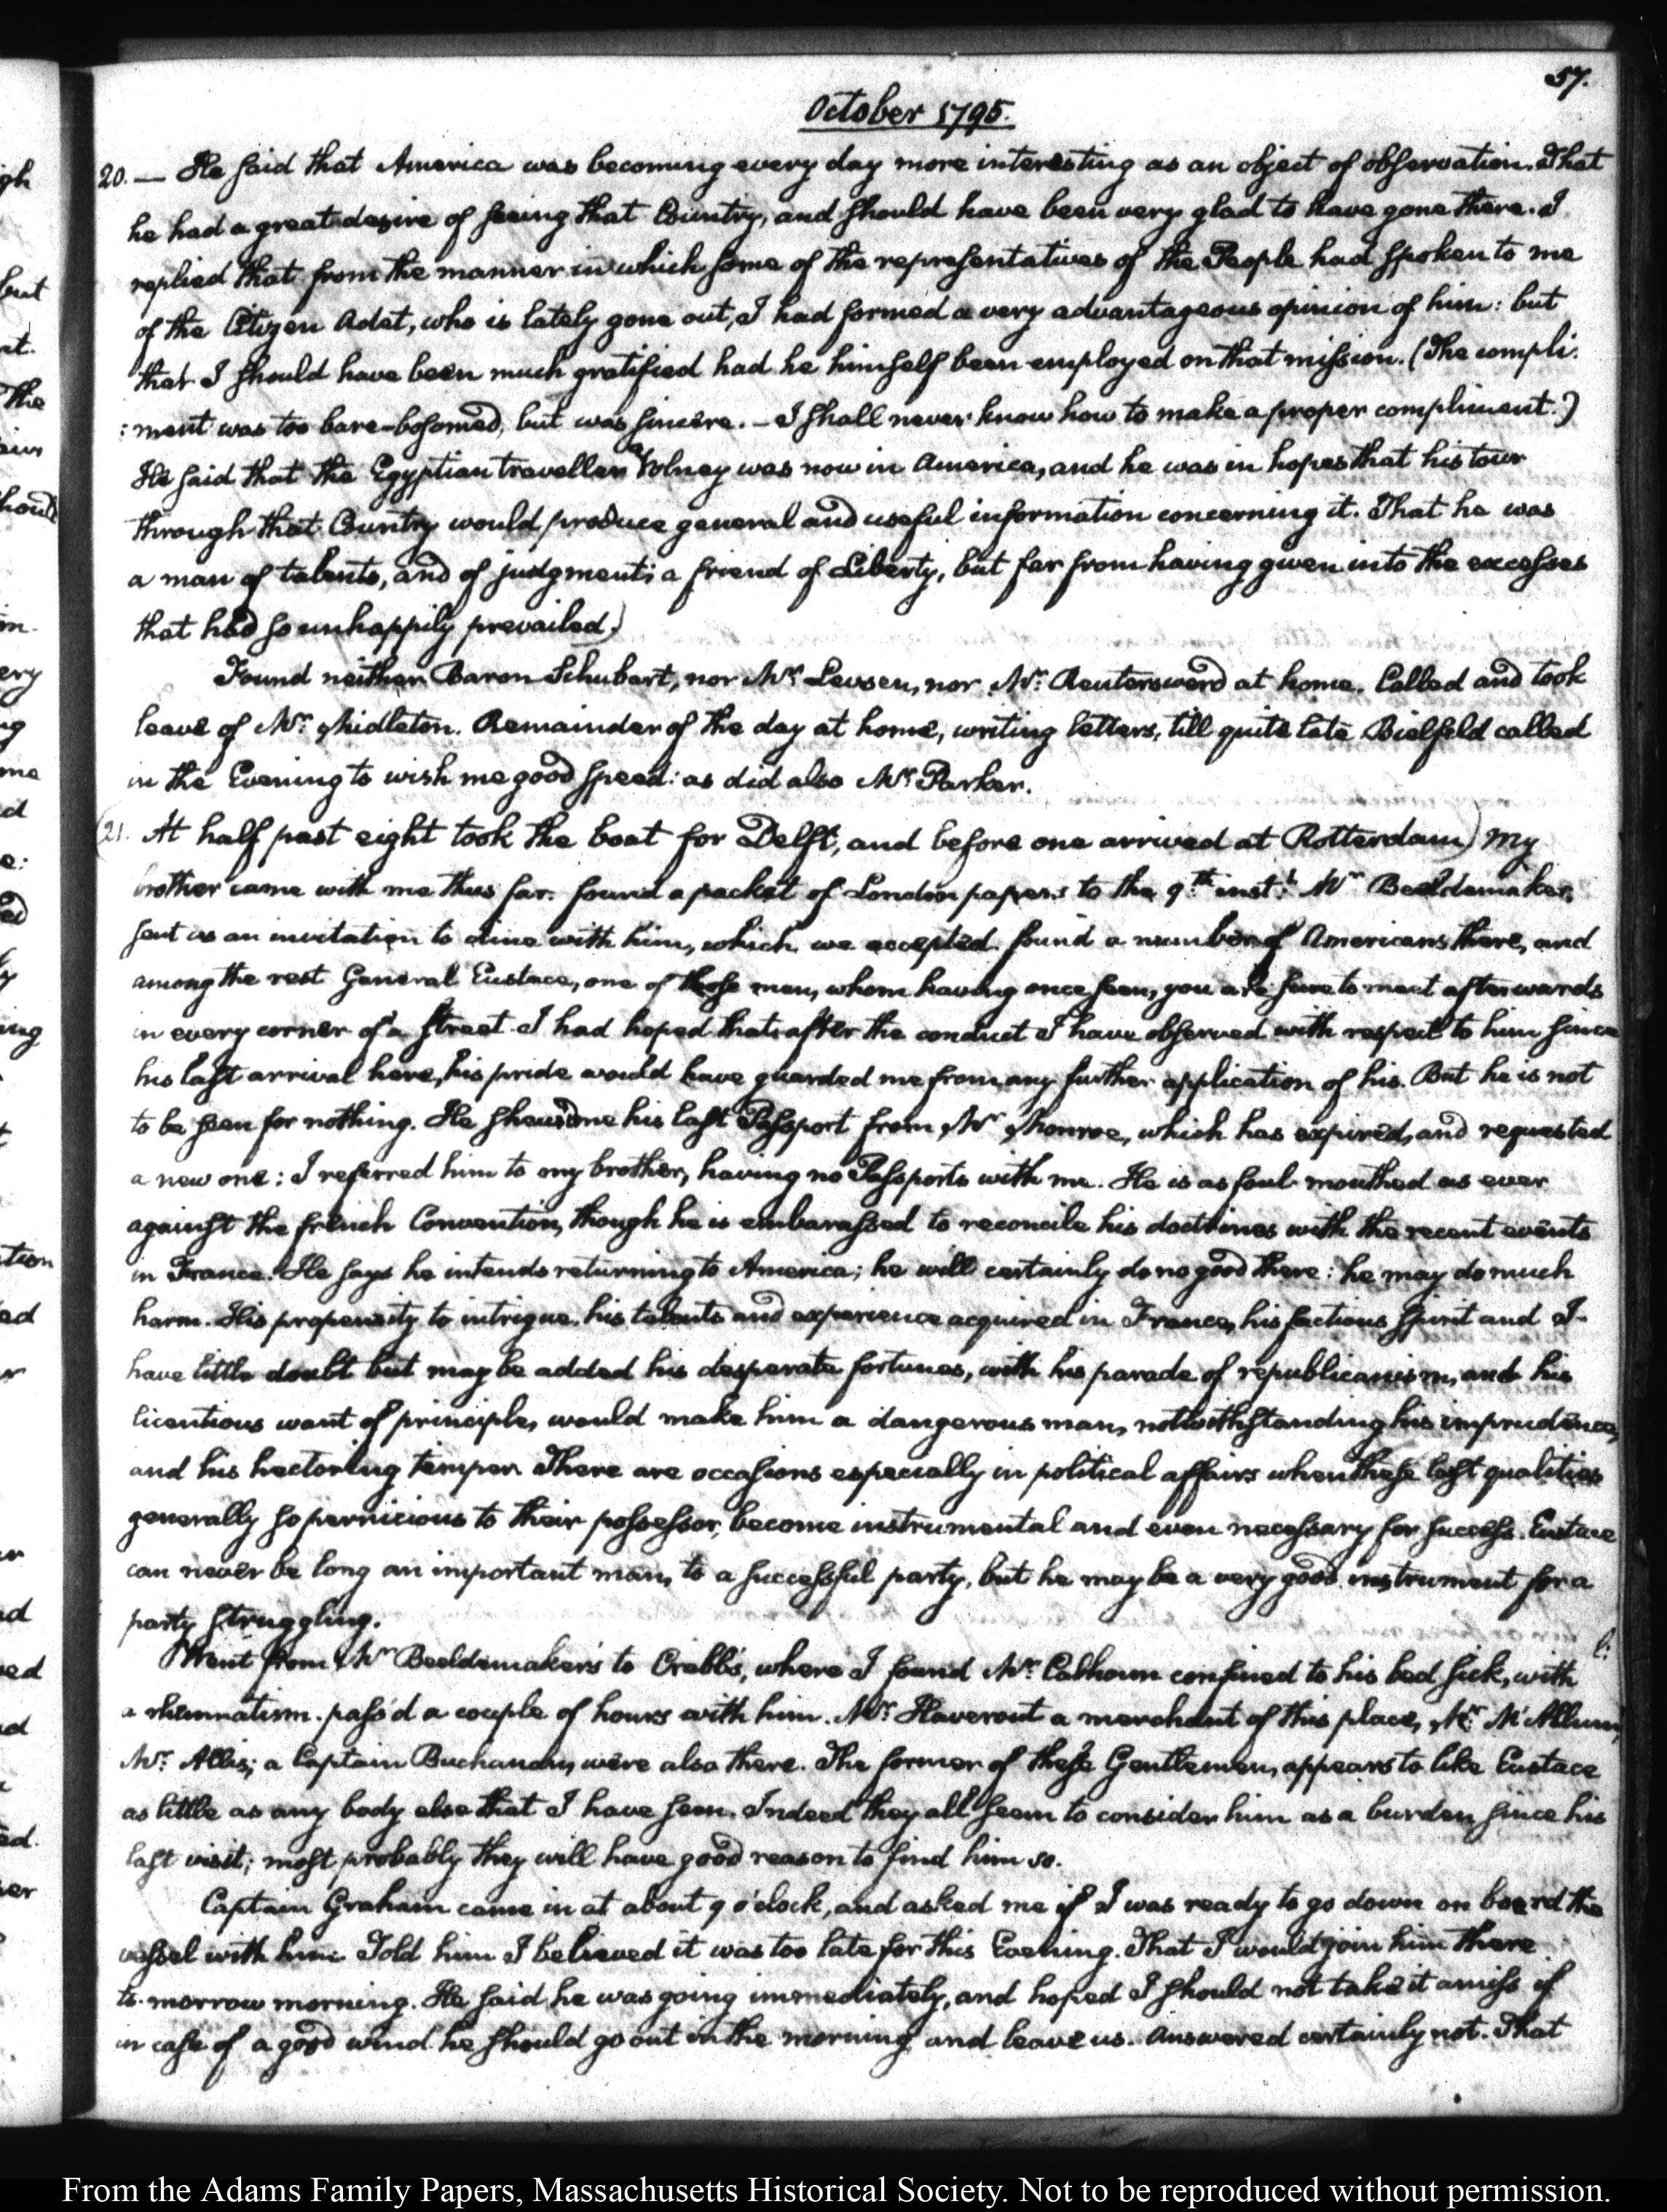 57.
October 1795.
20. — He said that America was becoming every day more interesting as an object of observation. That
he had a great desire of seeing that Country, and should have been very glad to have gone there. I
replied that from the manner in which some of the representatives of the People had spoken to me
of the Citizen Adet, who is lately gone out, I had formed a very advantageous opinion of him: but
that I should have been much gratified had he himself been employed on that mission. (The compli:
:ment was too bare-bosomed, but was sincere. — I shall never know how to make a proper compliment.)
He said that the Egyptian traveller Volney was now in America, and he was in hopes that his tour
through that Country would produce general and useful information concerning it. That he was
a man of talents, and of judgment; a friend of Liberty, but far from having given into the excesses
that had so unhappily prevailed.)
Found neither Baron Schubart, nor Mr. Levsen, nor Mr. Reutersward at home. Called and took
leave of Mr. Midleton. Remainder of the day at home, writing letters, till quite late Bielfeld called
in the Evening to wish me good speed: as did also Mr. Parker.
(21. At half past eight took the boat for Delft, and before one arrived at Rotterdam) My
brother came with me thus far. found a packet of London papers to the 9th. inst.t Mr Beeldemaker,
sent us an invitation to dine with him, which we accepted. found a number of Americans there, and
among the rest General Eustace, one of those men, whom having once seen, you are sure to meet afterwards
in every corner of a street. I had hoped that after the conduct I have observed with respect to him since
his last arrival here, his pride would have guarded me from any further application of his. But he is not
to be seen for nothing. He shewed me his last Passport from Mr Monroe, which has expired, and requested
a new one: I referred him to my brother, having no Passports with me. He is as foul-mouthed as ever
against the french Convention, though he is embarassed to reconcile his doctrines with the recent events
in France. He says he intends returning to America; he will certainly do no good there: he may do much
harm. His propensity to intrigue, his talents and experience acquired in France, his factious spirit and I
have little doubt but may be added his desperate fortunes, with his parade of republicanism, and his
licentious want of principle, would make him a dangerous man, notwithstanding his imprudence,
and his hectoring temper. There are occasions especially in political affairs when these last qualities
generally so pernicious to their possessor, become instrumental and even necessary for success. Eustace
can never be long an important man, to a successful party, but he may be a very good instrument for a
party struggling.
Went from Mr Beeldemaker's to Crabb's, where I found Mr. Calhoun confined to his bed sick, with
a rheumatism. pass'd a couple of hours with him. Mr. Haverout a merchant of this place, Mr. McAllum,
Mr. Allis; a Captain Buchanan, were also there. The former of these Gentlemen, appears to like Eustace
as little as any body else that I have seen. Indeed they all seem to consider him as a burden since his
last visit; most probably they will have good reason to find him so.
Captain Graham came in at about 9 o'clock, and asked me if I was ready to go down on board the
vessel with him. Told him I believed it was too late for this Evening. That I would join him there
to-morrow morning. He said he was going immediately, and hoped I should not take it amiss if
in case of a good wind he should go out in the morning and leave us. Answered certainly not. That
From the Adams Family Papers, Massachusetts Historical Society. Not to be reproduced without permission.